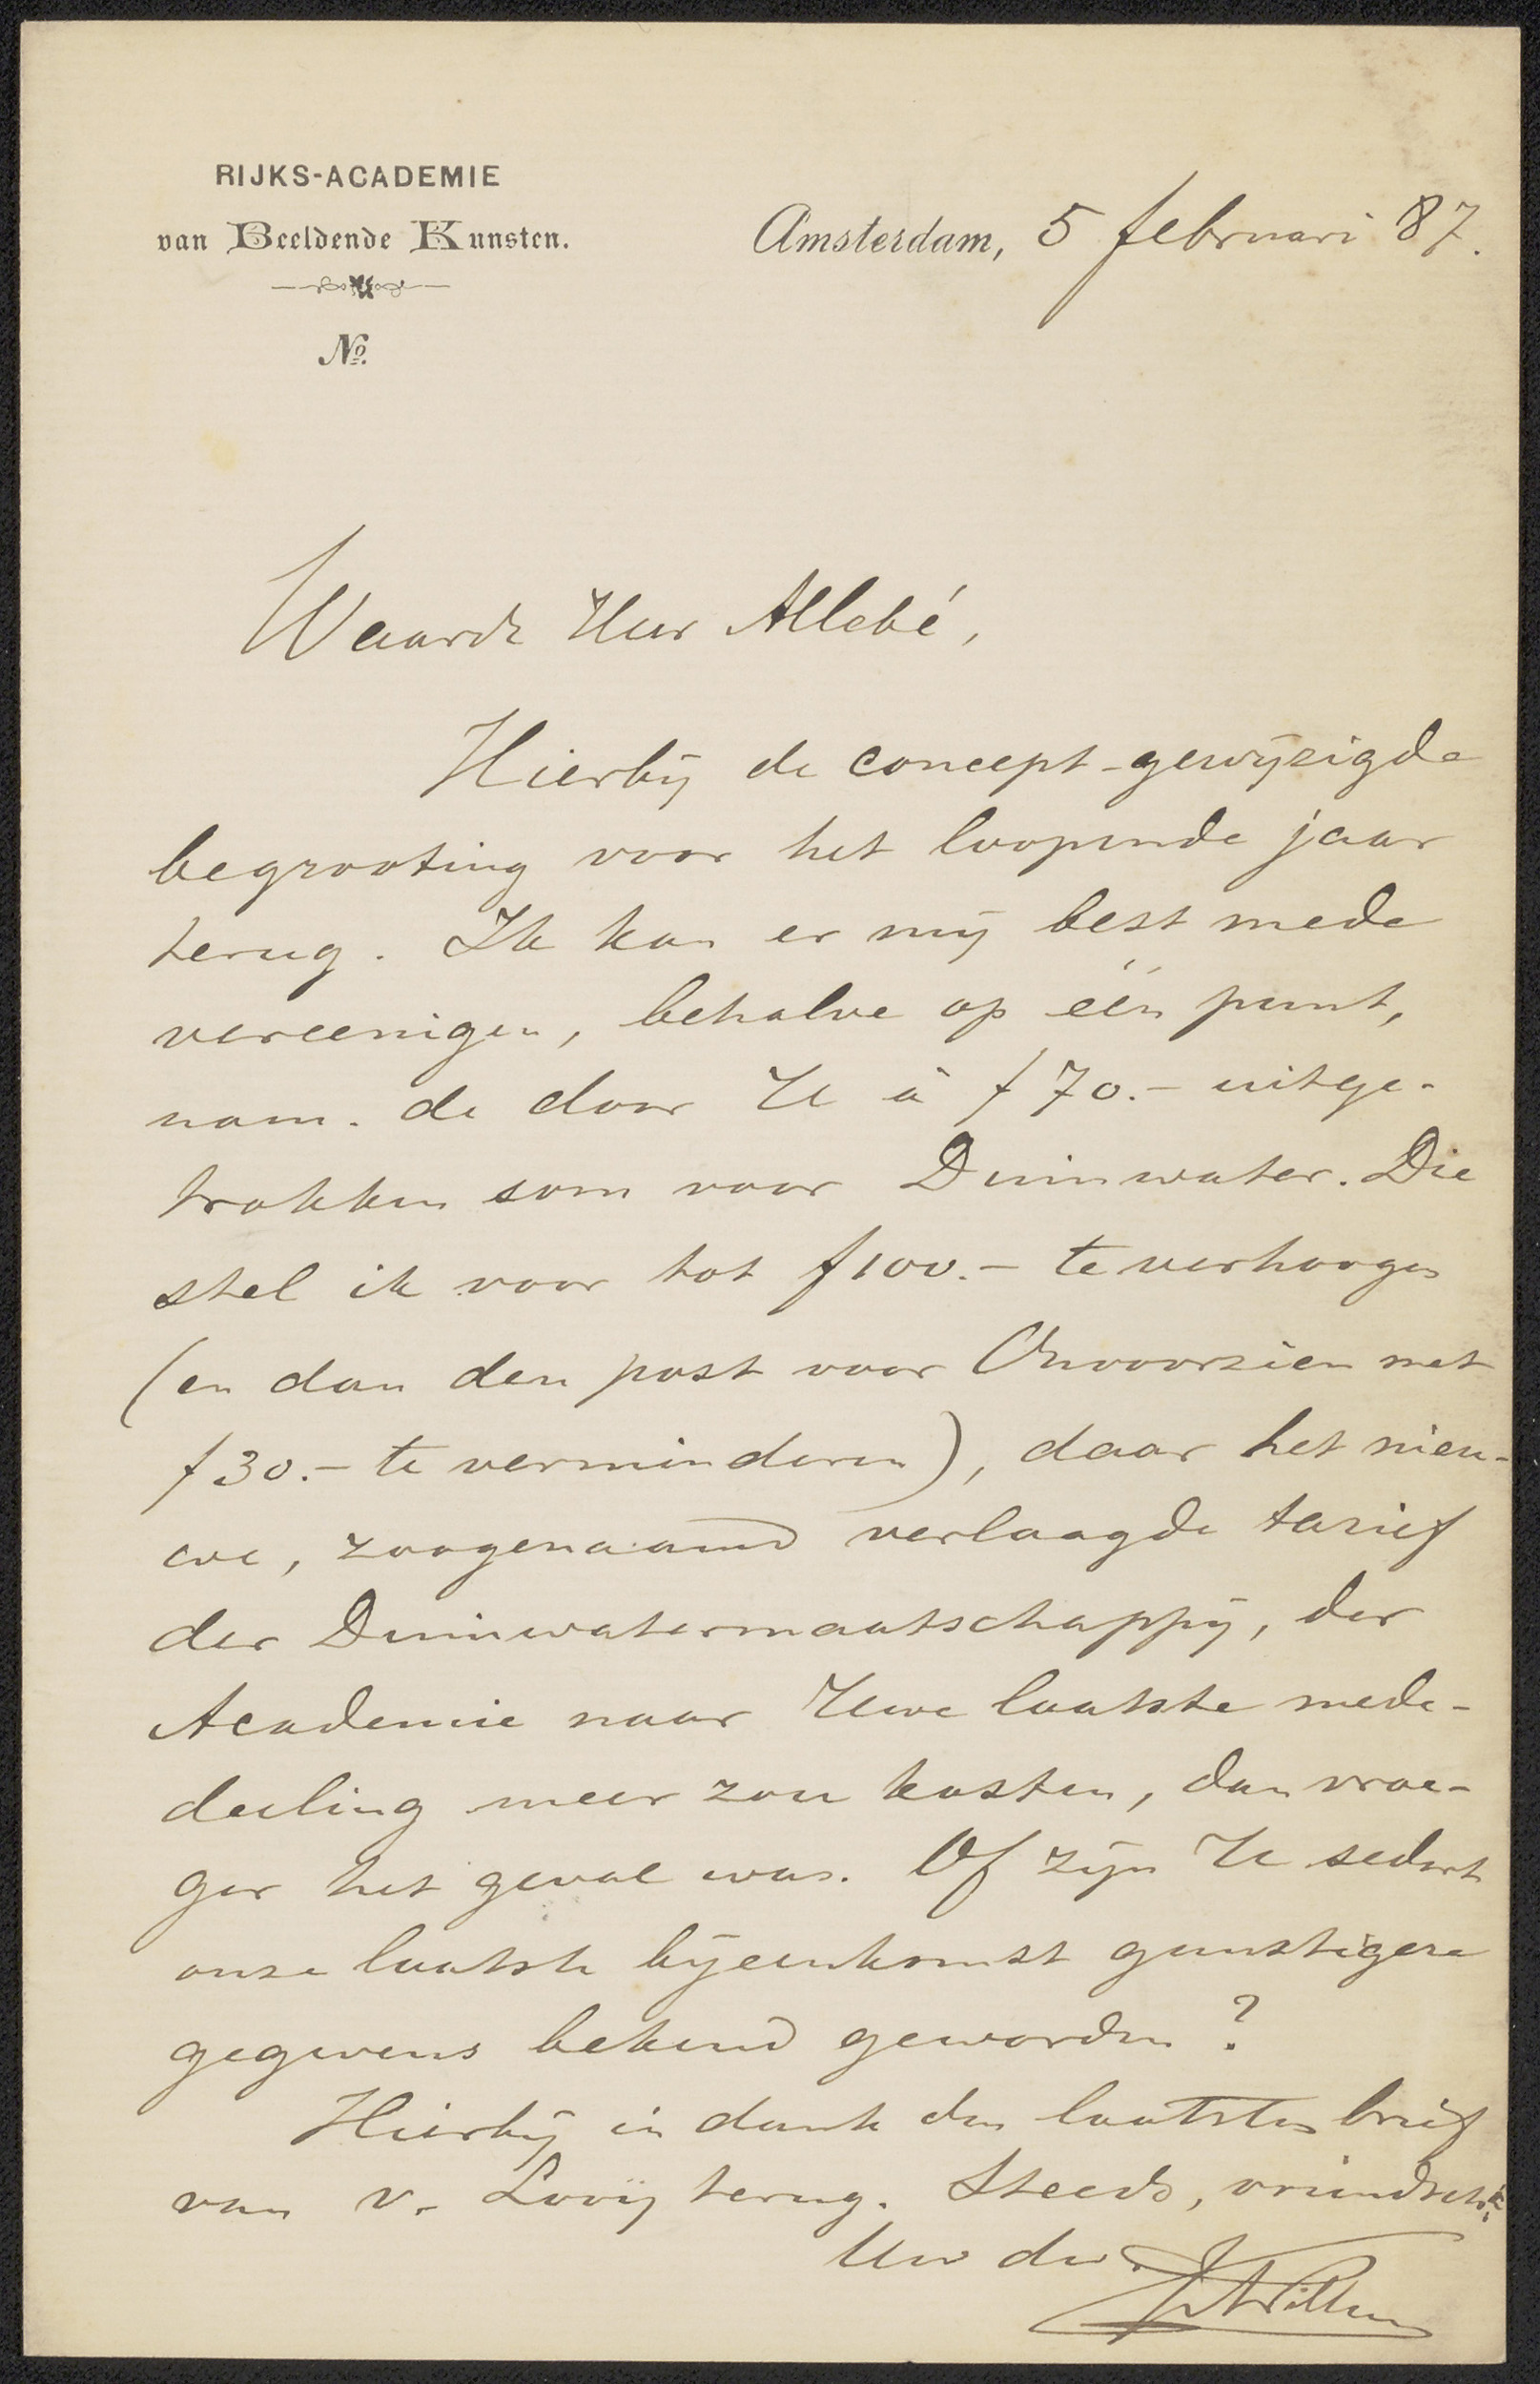 RIJKS-ACADEMIE
van Beeldende Kunsten.
No.
Amsterdam, 5 februari 87.
Waarde Heer Allebé,
Hierbij de concept-gewijzigde
begrooting voor het loopende jaar
terug. Ik kan er mij best mede
vereenigen, behalve op één punt,
nam. de door U à f 70.- uitge-
trokken som voor Duinwater. Die
stel ik voor tot f 100.- te verhoogen
(en dan den post voor Onvoorzien met
f 30.- te verminderen), daar het nieu-
we, zoogenaamd verlaagde tarief
der Duinwatermaatschappij, der
Academie naar Uwe laatste mede-
deeling meer zou kosten, dan vroe-
ger het geval was. Of zijn U sedert
onze laatste bijeenkomst gunstigere
gegevens bekend geworden?
Hierbij in dank den laatsten brief
van v. Looij terug. Steeds, vriendsch.
Uw dw.